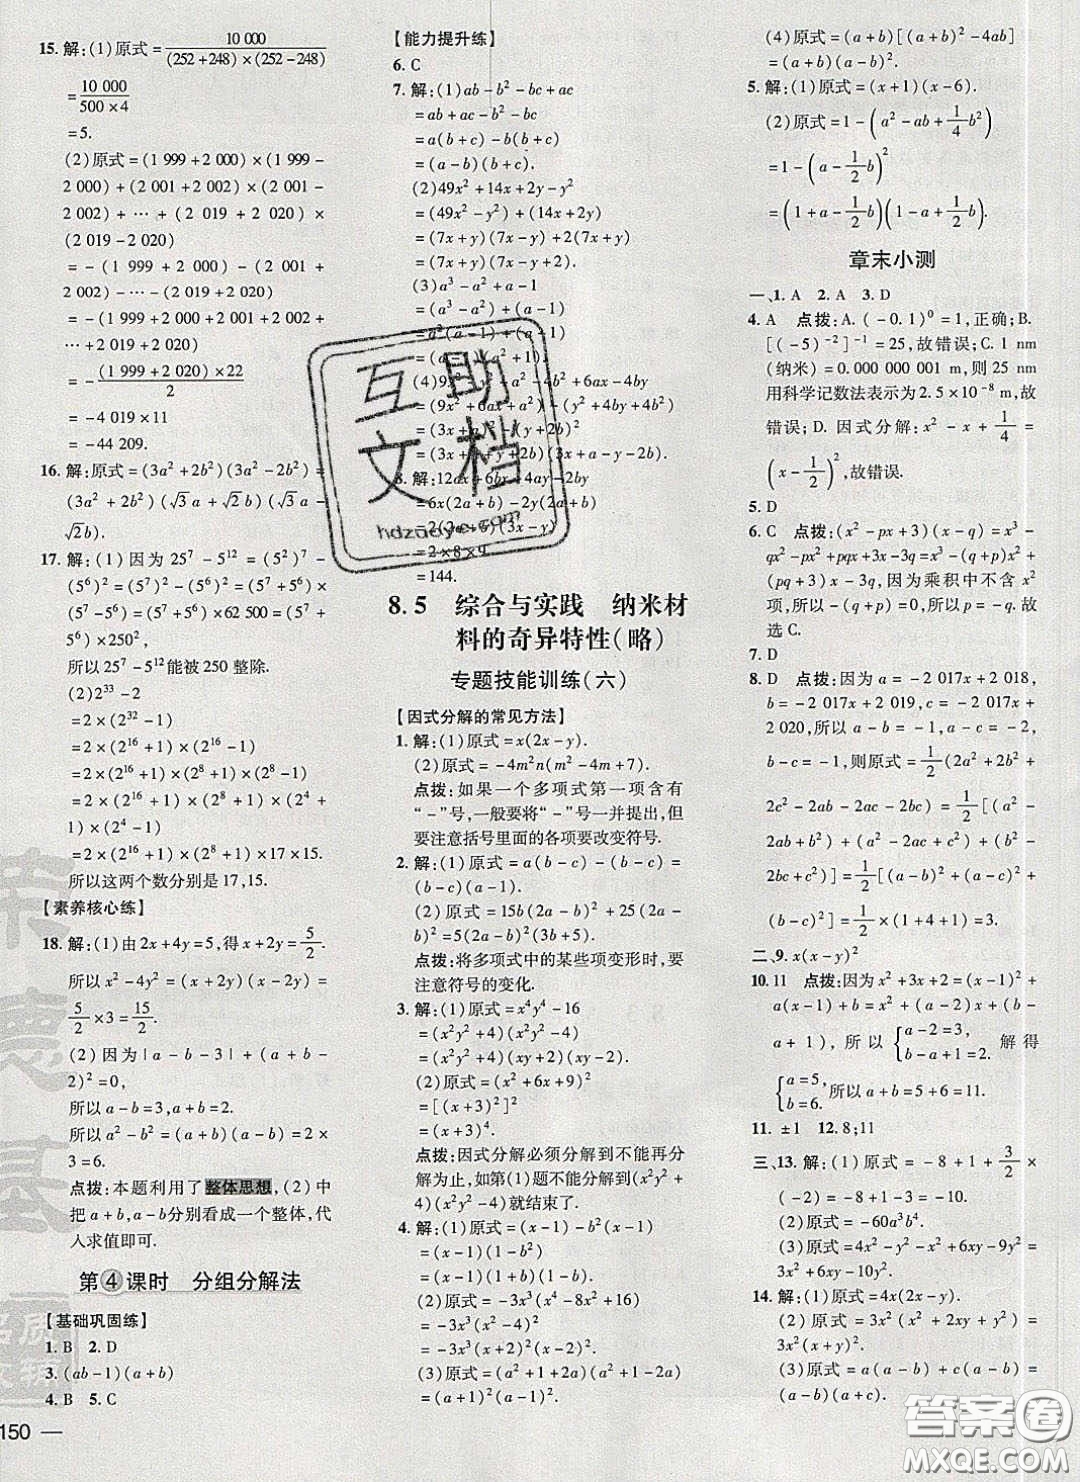 15. 解:(1)原式=10 000/((252+248)×(252-248))
=10 000/(500×4)
=5.
(2)原式=(1 999+2 000)×(1 999-
2 000)+(2 001+2 002)×(2 001-
2 002)+…+(2 019+2 020)×
(2 019-2 020)
=-(1 999+2 000)-(2 001+
2 002)-…-(2 019+2 020)
=-(1 999+2 000+2 001+2 002+
…+2 019+2 020)
=-((1 999+2 020)×22)/2
=-4 019×11
=-44 209.
16. 解:原式=(3a²+2b²)(3a²-2b²)=
(3a²+2b²)(√3a+√2b)(√3a-
√2b).
17. 解:(1)因为25⁷-5¹²=(5²)⁷-
(5⁶)²=(5⁷)²-(5⁶)²=(5⁷+5⁶)×
(5⁷-5⁶)=(5⁷+5⁶)×62 500=
(5⁷+5⁶)×250×250,
所以25⁷-5¹²能被250整除.
(2)2³³-2
=2×(2³²-1)
=2×(2¹⁶+1)×(2¹⁶-1)
=2×(2¹⁶+1)×(2⁸+1)×(2⁸-1)
=2×(2¹⁶+1)×(2⁸+1)×(2⁴+
1)×(2⁴-1)
=2×(2¹⁶+1)×(2⁸+1)×17×15.
所以这两个数分别是17,15.
【素养核心练】
18. 解:(1)由2x+4y=5,得x+2y=5/2.
所以x²-4y²=(x+2y)(x-2y)=
5/2×3=15/2.
(2)因为|a-b-3|+(a+b-
2)²=0,
所以a-b=3,a+b=2.
所以a²-b²=(a+b)(a-b)=2×
3=6.
点拨:本题利用了整体思想,(2)中
把a+b,a-b分别看成一个整体,代
入求值即可.
第④课时 分组分解法
【基础巩固练】
1. B 2. D
3. (ab-1)(a+b)
4. B 5. C
150 —
【能力提升练】
6. C
7. 解:(1)ab-b²-bc+ac
=ab+ac-b²-bc
=a(b+c)-b(b+c)
=(a-b)(b+c).
(2)49x²+14x+2y-y²
=(49x²-y²)+(14x+2y)
=(7x+y)(7x-y)+2(7x+y)
=(7x+y)(7x-y+2).
(3)a³-a²+a-1
=(a³-a²)+(a-1)
=a²(a-1)+(a-1)
=(a-1)(a²+1).
(4)9x²-a²+4b²+6ax-4by
=(9x²+6ax+a²)-(y²+4by+4b²)
=(3x+a)²-(y+2b)²
=(3x+a+y+2b)(3x+a-y-2b).
8. 解:12ax+6bx-4ay-2by
=6x(2a+b)-2y(2a+b)
=2(2a+b)(3x-y)
=2×8×9
=144.
8.5 综合与实践 纳米材
料的奇异特性(略)
专题技能训练(六)
【因式分解的常见方法】
1. 解:(1)原式=x(2x-y).
(2)原式=-4m²n(m²-4m+7).
点拨:如果一个多项式第一项含有
“-”号,一般要将“-”号一并提出,但
要注意括号里面的各项要改变符号.
2. 解:(1)原式=a(b-c)-(b-c)=
(b-c)(a-1).
(2)原式=15b(2a-b)²+25(2a-
b)²=5(2a-b)²(3b+5).
点拨:将多项式中的某些项变形时,要
注意符号的变化.
3. 解:(1)原式=x⁴y⁴-16
=(x²y²+4)(x²y²-4)
=(x²y²+4)(xy+2)(xy-2).
(2)原式=(x²+6x+9)²
=[(x+3)²]²
=(x+3)⁴.
点拨:因式分解必须分解到不能再分
解为止,如第(1)题不能分解到(x²y²+
4)(x²y²-4)就结束了.
4. 解:(1)原式=(x-1)-b²(x-1)
=(x-1)(1-b²)
=(x-1)(1+b)(1-b).
(2)原式=-3x²(x⁴-8x²+16)
=-3x²(x²-4)²
=-3x²(x+2)²(x-2)².
(3)原式=(a²+1+2a)(a²+1-2a)
=(a+1)²(a-1)².
(4)原式=(a+b)[(a+b)²-4ab]
=(a+b)(a-b)².
5. 解:(1)原式=(x+1)(x-6).
(2)原式=1-(a²-ab+1/4b²)
=1-(a-1/2b)²
=(1+a-1/2b)(1-a+1/2b).
章末小测
一、1. A 2. A 3. D
4. A 点拨:A. (-0.1)⁰=1,正确;B.
[(-5)⁻²]⁻¹=25,故错误;C. 1 nm
(纳米)=0.000 000 001 m,则25 nm
用科学记数法表示为2.5×10⁻⁸ m,故
错误;D. 因式分解:x²-x+1/4=
(x-1/2)²,故错误.
5. D
6. C 点拨:(x²-px+3)(x-q)=x³-
qx²-px²+pqx+3x-3q=x³-(p+q)x²+
(pq+3)x-3q. 因为乘积中不含x²
项,所以-(q+p)=0,即p+q=0. 故
选C.
7. D
8. D 点拨:因为a=-2 017x+2 018,
b=-2 017x+2 019,c=-2 017x+
2 020,所以a-b=-1,a-c=-2,
b-c=-1,则原式=1/2(2a²+2b²+
2c²-2ab-2ac-2bc)=1/2[(a²-
2ab+b²)+(a²-2ac+c²)+(b²-
2bc+c²)]=1/2[(a-b)²+(a-c)²+
(b-c)²]=1/2×(1+4+1)=3.
二、9. x(x-y)²
10. 11 点拨:因为x²+3x+2=(x-1)²+
a(x-1)+b=x²+(a-2)x+(b-
a+1),所以{a-2=3, b-a+1=2. 解得
{a=5, b=6. 所以a+b=5+6=11.
11. ±1 12. 8;11
三、13. 解:(1)原式=-8+1+3/2×
(-2)=-8+1-3=-10.
(2)原式=-60a³b⁴.
(3)原式=4x²-6xy+6xy-9y²=
4x²-9y².
14. 解:(1)原式=4x(2x-y).
(2)原式=(a²+4+4a)(a²+4-4a)
=(a+2)²(a-2)².
(3)原式=a(a-b)+c(a-b)=
(a-b)(a+c).
互助文档
hdzuoye.com
答案圈
MXQE.COM